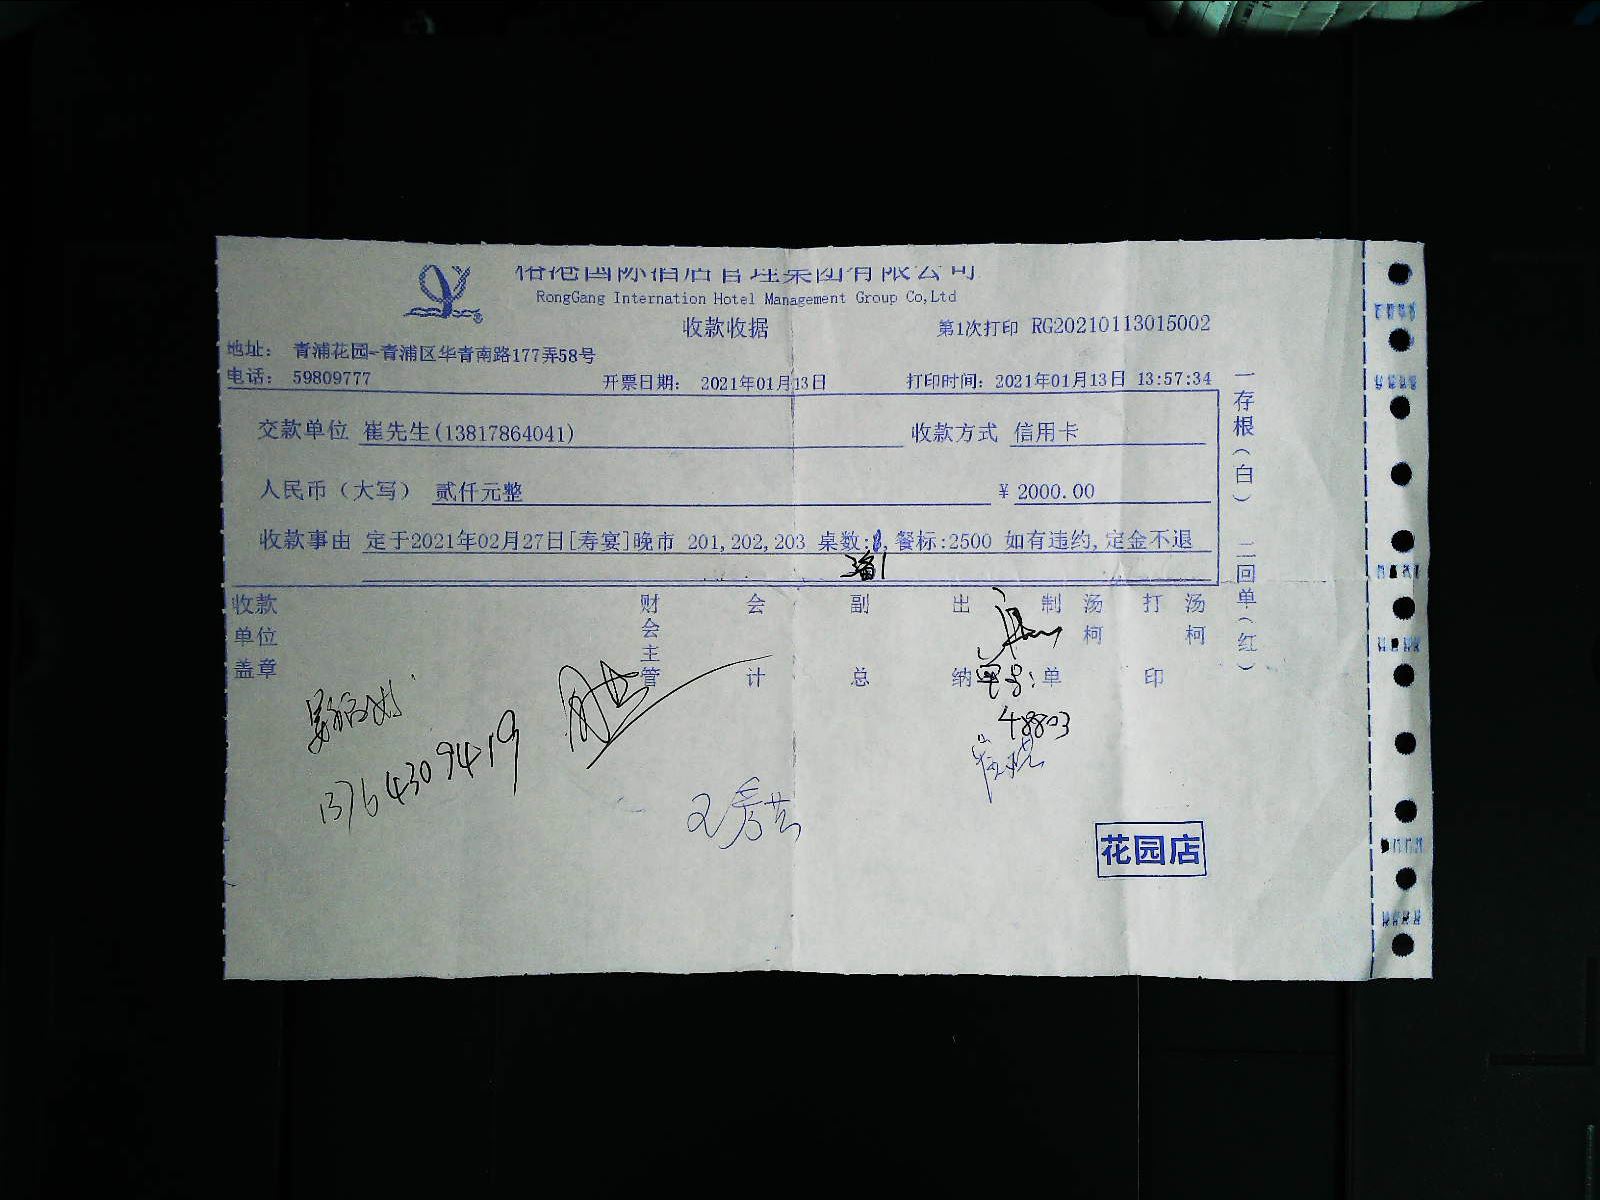 国际酒店管理集团有限公司
RongGang Internation Hotel Management Group Co,Ltd
收款收据
第1次打印 RG20210113015002
地址： 青浦花园-青浦区华青南路177弄58号
电话： 59809777
开票日期： 2021年01月13日
打印时间：2021年01月13日 13:57:34
交款单位 崔先生(13817864041)
收款方式 信用卡
人民币（大写） 贰仟元整
¥ 2000.00
收款事由 定于2021年02月27日[寿宴]晚市 201,202,203 桌数: ,餐标:2500 如有违约,定金不退
一存根（白） 二回单（红）
收款单位盖章
财会主管
会计
副总
出纳
制单
汤柯
打印
汤柯
单号:
48803
13764309419
王秀芸
花园店